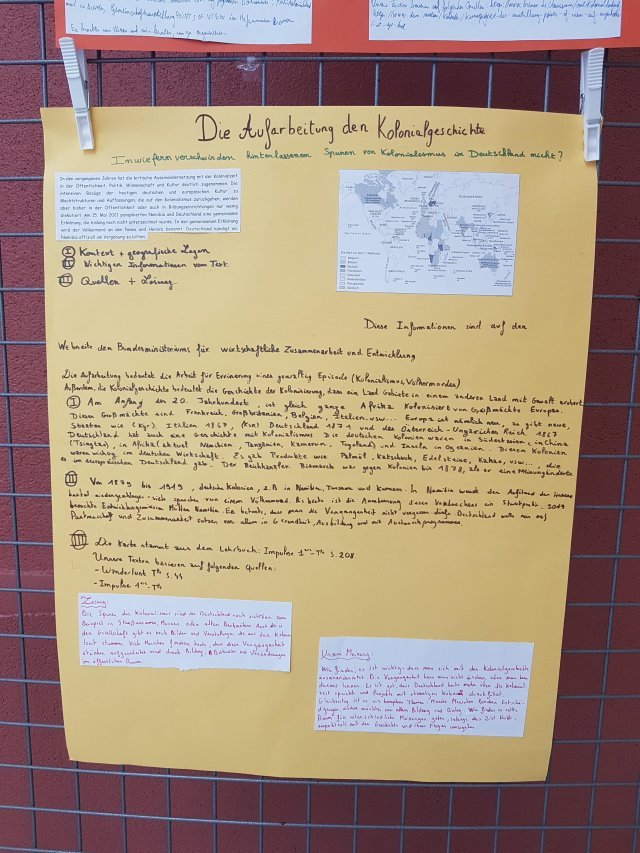 Es
Die Aufarbeitung den Kolonialgeschichte
Inwiefern verschwinden hinterlassenen Spuren von Kolonialismus in Deutschland nicht?
In den vergangenen Jahren hat die kritische Auseinandersetzung mit der Kolonialzeit
in der Öffentlichkeit, Politik, Wissenschaft und Kultur deutlich zugenommen. Die
intensiven Bezüge der heutigen deutschen und europäischen Kultur zu
Machtstrukturen und Auffassungen, die auf den Kolonialismus zurückgehen, werden
aber bisher in der Öffentlichkeit oder auch in Bildungseinrichtungen nur wenig
diskutiert. Am 15. Mai 2021 paraphierten Namibia und Deutschland eine gemeinsame
Erklärung, die bislang noch nicht unterzeichnet wurde. In der gemeinsamen Erklärung
wird der Völkermord an den Nama und Herero benannt. Deutschland kündigt an,
Namibia offiziell um Vergebung zu bitten.
I Kontext + geografische Lagen
II Wichtigen Informationen vom Text
III Quellen + Lösung
Diese Informationen sind auf den
Webseite den Bundesministeriums für wirtschaftliche Zusammenarbeit und Entwicklung
Die Aufarbeitung bedeutet die Arbeit für Errinerung eines gewaltig Episode (Kolonialismus, Völkermorden)
Aufarbeitung die Kolonialgeschichte bedeutet die Geschichte der Kolonisierung, dass ein Land Gebiete in einem anderen Land mit Gewalt erobert.
I Am Anfang des 20. Jahrhundert, ist gleich ganze Afrika Kolonisiert von Großmächte Europas.
Diesen Großmächte sind Frankreich, Großbritannien, Belgien, Italien usw... Europa ist nämlich neu, es gibt neue,
Staaten wie (Kgr.) Italien 1861, (Ksn) Deutschland 1871 und das Österreich-Ungarische Reich 1867
Deutschland hat auch eine Geschichte mit Kolonialismus. Die deutschen Kolonien waren in Südostasien, in China
(Tsingtao), in Afrika (aktuell Namibien, Tansanien, Kamerun, Togoland) und Inseln in Ozeanien. Diesen Kolonien
waren wichtig im deutschen Wirtschaft. Es gab Produkte wie Palmöl, Katschuck, Edelsteine, Kakao, usw... die
es im europäischen Deutschland gab. Der Reichkanzler Bismarck war gegen Kolonien bis 1878, als er eine Meinungänderte
II Von 1879 bis 1919, deutsche Kolonien, z.B in Namibia, Tansania und Kamerun. In Namibia wurde den Aufstand der Herero
brutal niedergeschlagen - viele sprechen von einem Völkermord. Bis heute ist die Anerkennung dieses Verbrechens ein Streitpunkt. 2019
besuchte Entwicklungsminister Müller Namibia. Er betonte, dass man die Vergangenheit nicht vergessen dürfe. Deutschland wolle nun auf
Partnerschaft und Zusammenarbeit setzen vor allem in Gesundheit, Ausbildung und mit Austauschprogrammen.
III Die Karte stammt aus dem Lehrbuch: Impulse 1ere-Tle S.208
Unsere Texten basieren auf folgenden Quellen:
- Wanderlust Tle S.44
- Impulse 1ere-Tle
Lösung:
Die Spuren des Kolonialismus sind in Deutschland noch sichtbar zum
Beispiel in Straßennamen, Museen oder alten Denkmälern. Auch in
den Gesellschaft gibt es noch Bilder und Vorstellungen, die aus dem Kolonial
zeit stammen. Viele Menschen fordern heute, dass diese Vergangenheit
stärker aufgearbeitet wird durch Bildung, Diskussion und Veränderungen
im öffentlichen Raum.
Unsere Meinung:
Wir finden, es ist wichtig, dass man sich mit der Kolonialgeschichte
auseinandersetzt. Die Vergangenheit kann man nicht ändern, aber man kann
daraus lernen. Es ist gut, dass Deutschland heute mehr über die Kolonial
zeit spricht und Projekte mit ehemaligen Kolonien durchführt.
Gleichzeitig ist es ein komplexes Thema: Manche Menschen fordern Entschä-
digungen, andere möchten vor allem Bildung und Dialog. Wir finden es sollte
Raum für unterschiedliche Meinungen geben, solange das Ziel bleibt,
respektvoll mit der Geschichte und ihren Folgen umzugehen.